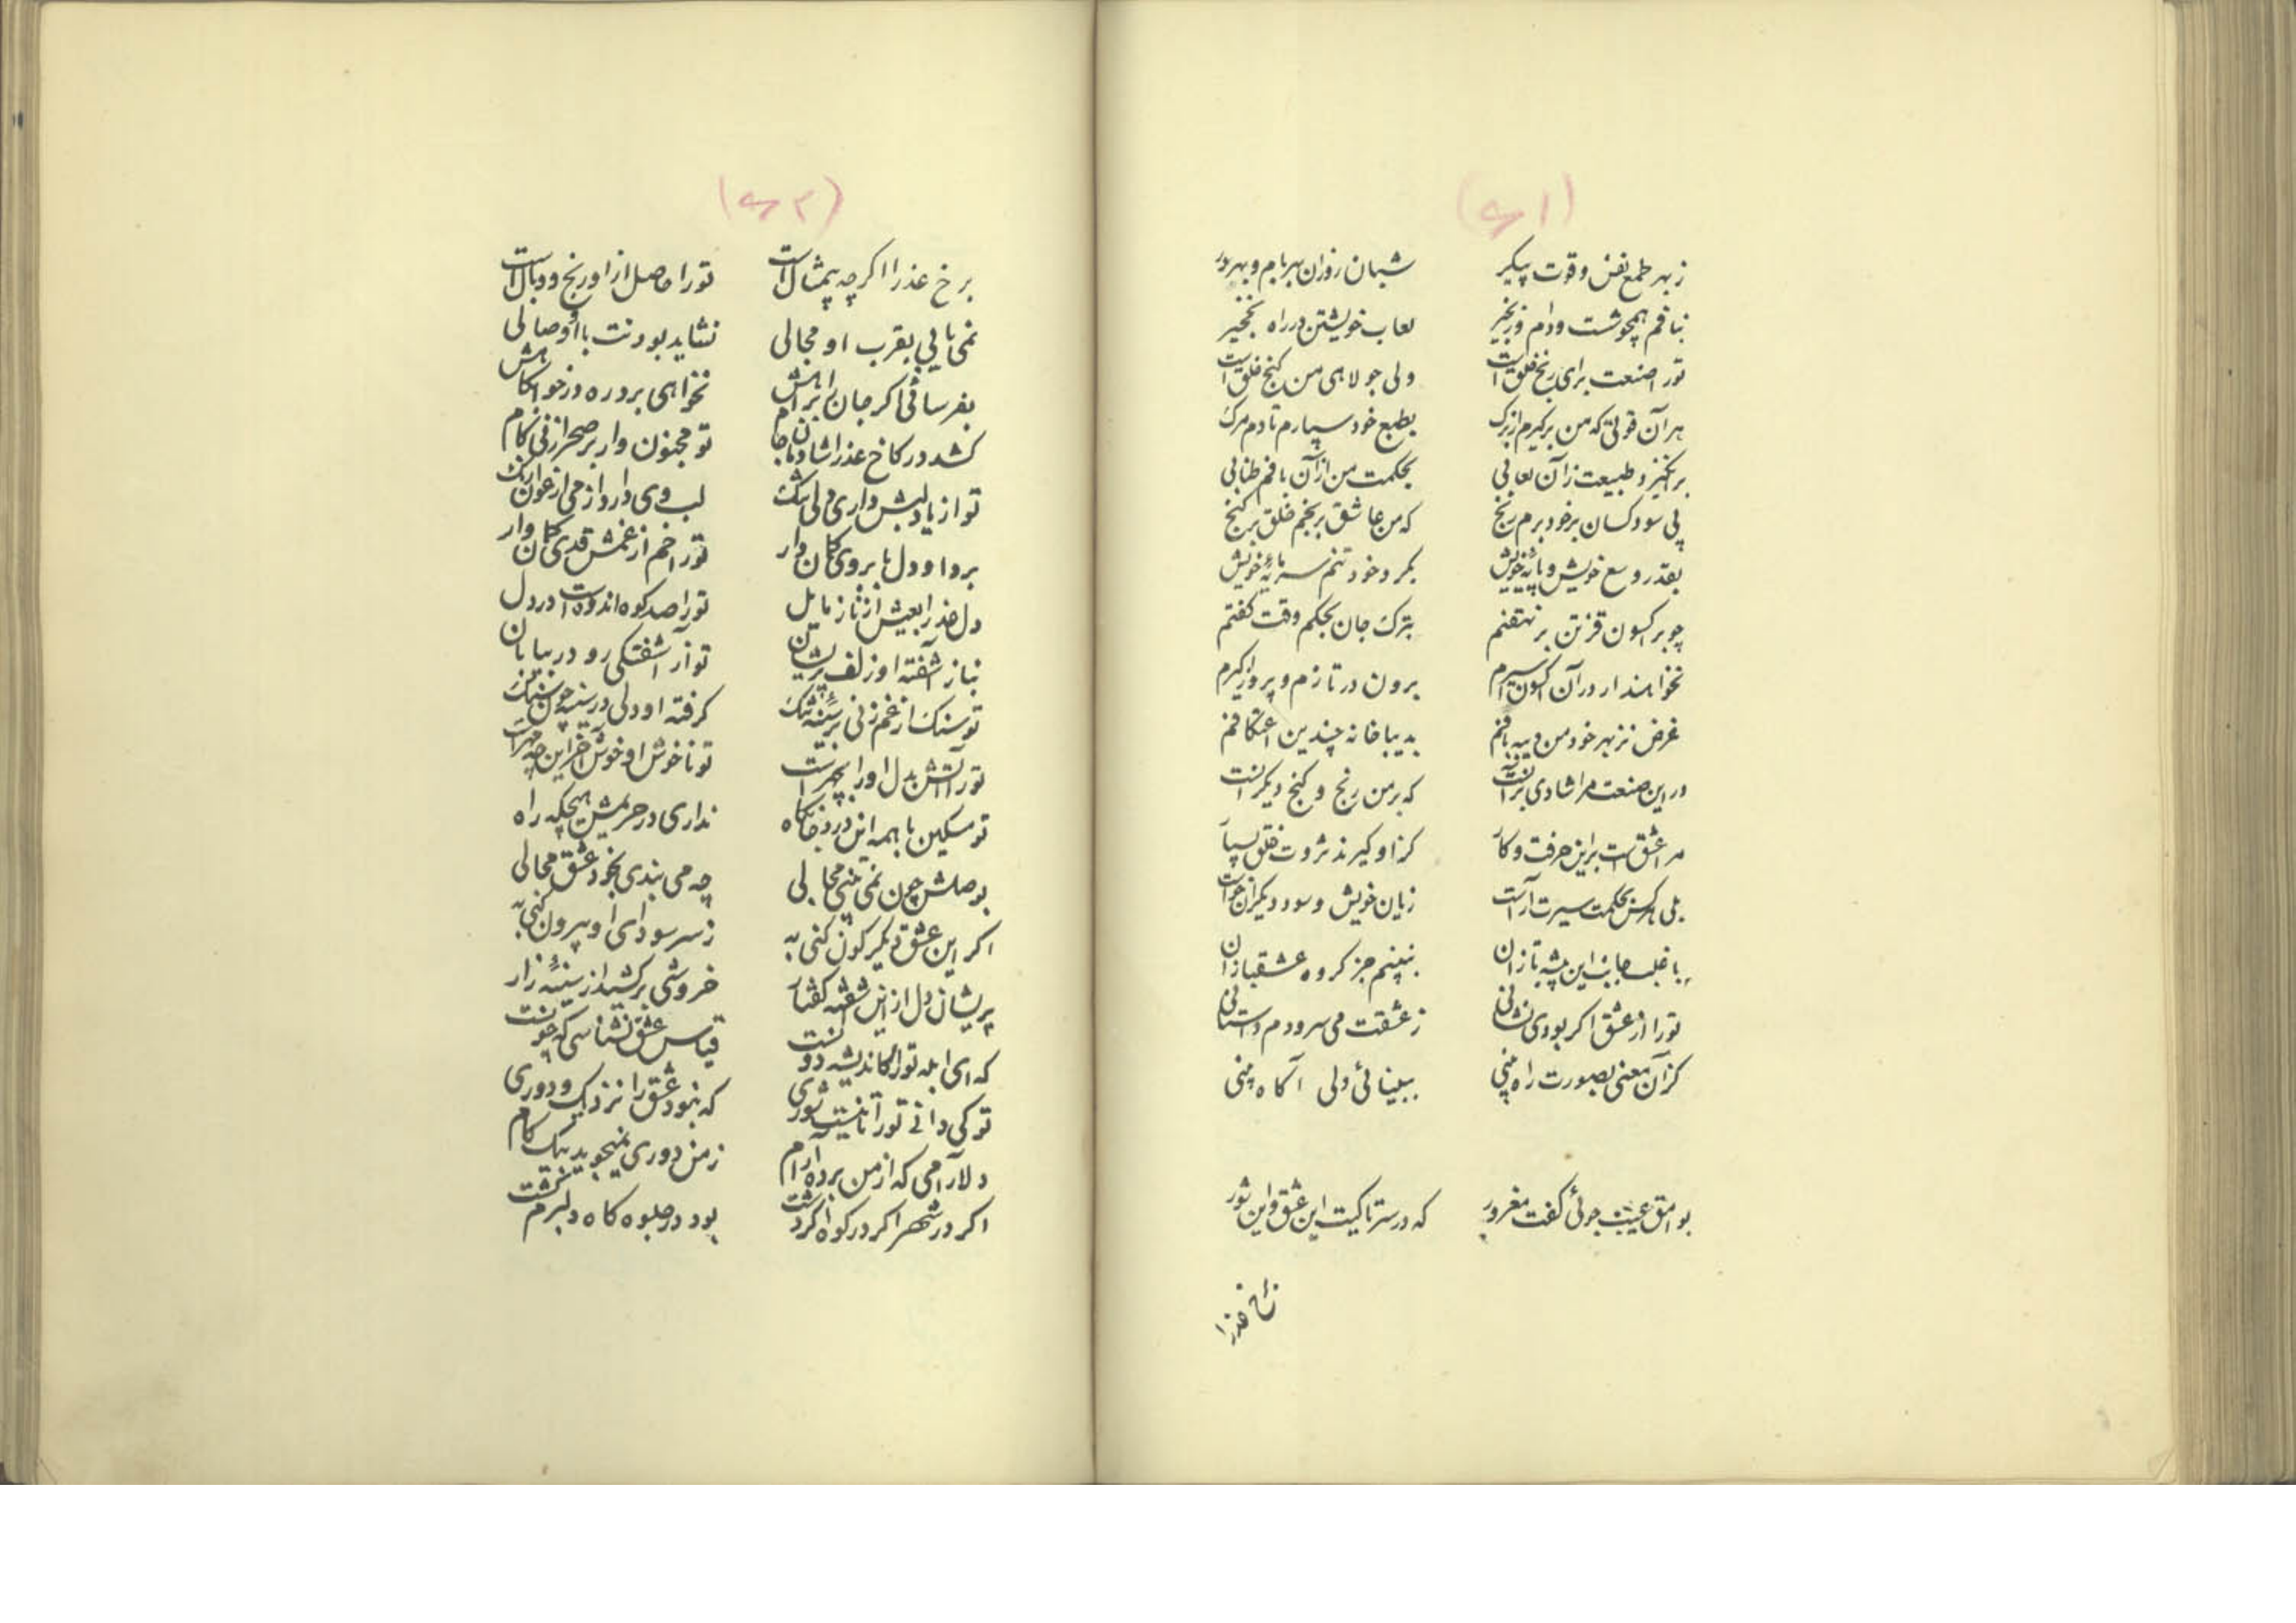 (۶۱)
ز بهر طمع نفس و قوت پیکر شبان روزان بهر بام و بهر در
نبافم همچو شست و دام و زنجیر لعاب خویشتن در راه نخجیر
تو را صنعت برای رنج خلق است ولی جولاهی من گنج خلق است
هر آن قوتی که من برگیرم از برگ بطبع خود سپارم تا دم مرگ
برانگیزد طبیعت زان لعابی بحکمت من از آن بافم طنابی
پی سود کسان بر خود برم رنج که من عاشق برنجم خلق بر گنج
بقدر وسع خویش و پایهٔ خویش بگرد خود تنم سرمایهٔ خویش
چو بر اکسون قزتن بر نهفتم بترک جان بحکم وقت گفتم
نخواهند ار در آن اکسون اسیرم برون در تازم و پرواز گیرم
غرض نز بهر خود من دیبه بافم بدیباخانه چندین اعتکافم
در این صنعت مرا شادی بر آنست که بر من رنج و گنج دیگرانست
مرا عشق است براین حرفت و کار کز او گیرند ثروت خلق بسیار
بلی هر کس بحکمت سیرت آراست زیان خویش و سود دیگران خواست
باغلب صاحب این پیشه تازان نبینم جز گروه عشقبازان
تو را از عشق اگر بودی نشانی ز عشقت می سرودم داستانی
کز آن معنی بصورت راه بینی ببینائی ولی آگاه بینی
بوامق عیب جوئی گفت مغرور که در سر تا کیت این عشق و این شور
(۶۲)
برخ عذرا اگر چه بیمثال است تو را حاصل از او رنج و وبال است
نمی یابی بقرب او مجالی نشاید بودنت با او وصالی
بفرسائی اگر جان را براهش نخواهی برد ره در خوابگاهش
کشد در کاخ عذرا شادمان جام تو مجنون وار بر صحرا زنی گام
تو از یاد لبش داری دلی تنگ لب وی دارد از می ارغوان رنگ
برد او دل بابروی کمان وار تو را خم از غمش قدی کمان وار
دل عذرا بعیش از ناز مایل تو را صد کوه اندوه است در دل
بناز آشفته او زلف پریشان تو از آشفتگی رو در بیابان
تو سنگ از غم زنی بر سینهٔ تنگ گرفته او دلی در سینه چون سنگ
تو را آتش بدل او را بچهر است تو ناخوش او خوش آخر این چه مهر است
تو مسکین با همه این درد جانکاه نداری در حریمش هیچگه راه
بوصلش چون نمی بینی مجالی چه می بندی بخود عشق محالی
اگر این عشق دیگرگون کنی به ز سر سودای او بیرون کنی به
پریشان دل از این آشفته گفتار خروشی برکشید از سینهٔ زار
که ای ابله تو را کاندیشه دونست قیاس عشق نشناسی که چونست
تو کی دانی تو را تا نیست شوری که نبود عشق را نزدیک و دوری
دلارامی که از من برده آرام ز من دوری نمیجوید بیک گام
اگر در شهر اگر در کوه اگر دشت بود در جلوه گاه دلبرم گشت